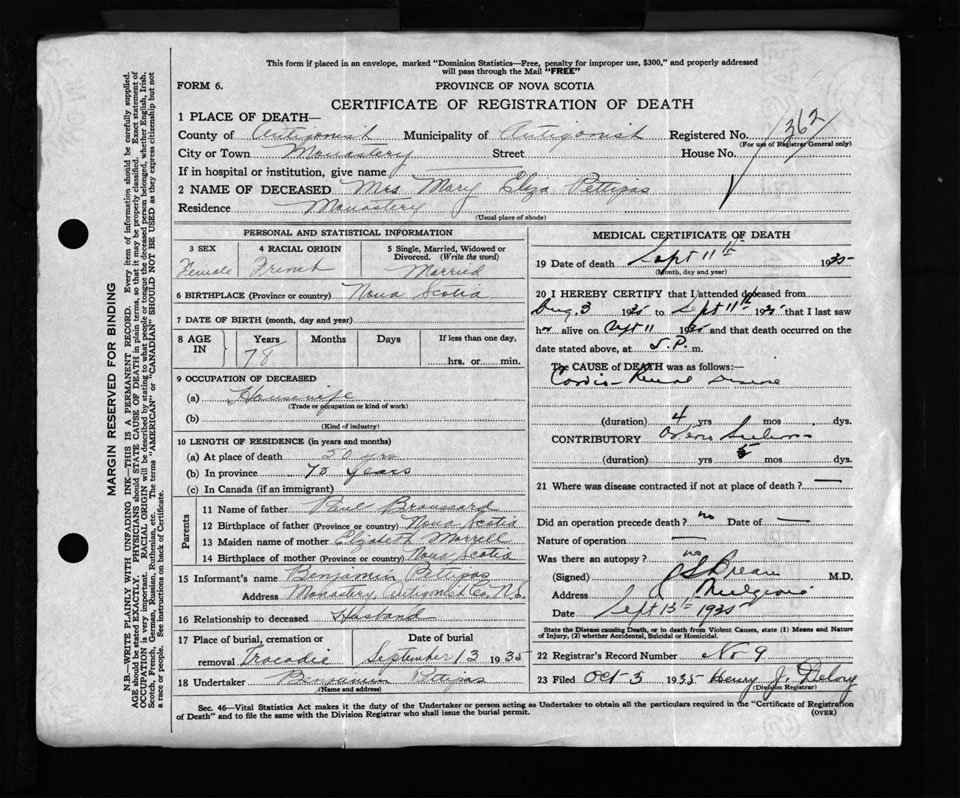 This form if placed in an envelope, marked "Dominion Statistics—Free, penalty for improper use, $300," and properly addressed
will pass through the Mail "FREE"
FORM 6.
PROVINCE OF NOVA SCOTIA
CERTIFICATE OF REGISTRATION OF DEATH
1 PLACE OF DEATH—
County of Antigonish Municipality of Antigonish Registered No. 1362
(For use of Registrar General only)
City or Town Monastery Street House No.
If in hospital or institution, give name
2 NAME OF DECEASED Mrs Mary Eliza Pettipas
Residence Monastery
(Usual place of abode)
PERSONAL AND STATISTICAL INFORMATION
3 SEX 4 RACIAL ORIGIN 5 Single, Married, Widowed or Divorced. (Write the word)
Female French Married
6 BIRTHPLACE (Province or country) Nova Scotia
7 DATE OF BIRTH (month, day and year)
8 AGE IN Years Months Days If less than one day,
78 hrs. or min.
9 OCCUPATION OF DECEASED
(a) Housewife
(Trade or occupation or kind of work)
(b)
(Kind of industry)
10 LENGTH OF RESIDENCE (in years and months)
(a) At place of death 50 yrs
(b) In province 78 years
(c) In Canada (if an immigrant)
Parents
11 Name of father Paul Broussard
12 Birthplace of father (Province or country) Nova Scotia
13 Maiden name of mother Elizabeth Morrell
14 Birthplace of mother (Province or country) Nova Scotia
15 Informant's name Benjamin Pettipas
Address Monastery, Antigonish Co, N.S.
16 Relationship to deceased Husband
17 Place of burial, cremation or Date of burial
removal Tracadie September 13 1935
18 Undertaker Benjamin Pettipas
(Name and address)
MEDICAL CERTIFICATE OF DEATH
19 Date of death Sept 11th 1935
(Month, day and year)
20 I HEREBY CERTIFY that I attended deceased from
Aug. 3 1935 to Sept 11th 1935 that I last saw
her alive on Sept 11 1935 and that death occurred on the
date stated above, at 5.P. m.
The CAUSE of DEATH was as follows:
Cardio-Renal Disease
(duration) 4 yrs mos dys.
CONTRIBUTORY
(duration) yrs 5 mos dys.
21 Where was disease contracted if not at place of death? —
Did an operation precede death? no Date of —
Nature of operation —
Was there an autopsy? no
(Signed) M.D.
Address Mulgrave
Date Sept 13th 1935
State the Disease causing Death, or in death from Violent Causes, state (1) Means and Nature
of Injury, (2) whether Accidental, Suicidal or Homicidal.
22 Registrar's Record Number No 9
23 Filed Oct 3 1935 Henry J. Delory
(Division Registrar)
Sec. 46—Vital Statistics Act makes it the duty of the Undertaker or person acting as Undertaker to obtain all the particulars required in the "Certificate of Registration
of Death" and to file the same with the Division Registrar who shall issue the burial permit.
(OVER)
MARGIN RESERVED FOR BINDING
N.B.—WRITE PLAINLY WITH UNFADING INK—THIS IS A PERMANENT RECORD. Every item of information should be carefully supplied.
AGE should be stated EXACTLY. PHYSICIANS should STATE CAUSE OF DEATH in plain terms, so that it may be properly classified. Exact statement of
OCCUPATION is very important. RACIAL ORIGIN will be described by stating to what people or tongue the deceased person belonged, whether English, Irish,
Scotch, French, German, Russian, Ruthenian, etc. The terms "AMERICAN" or "CANADIAN" SHOULD NOT BE USED as they express citizenship but not
a race or people. See instructions on back of Certificate.